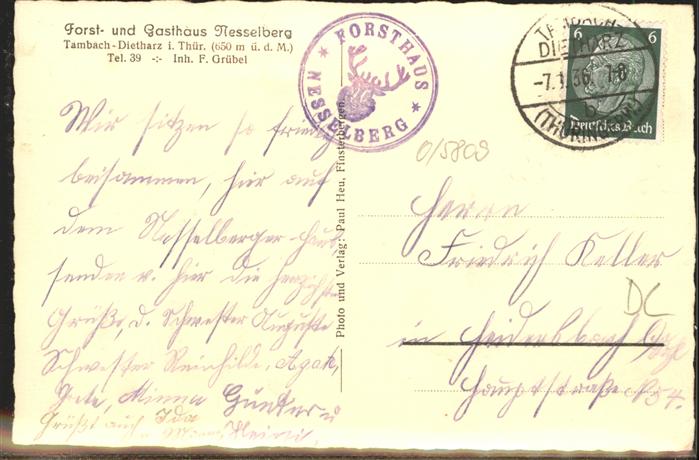 Forst- und Gasthaus Nesselberg
Tambach-Dietharz i. Thür. (650 m ü. d. M.)
Tel. 39 -:- Inh. F. Grübel
FORSTHAUS
NESSELBERG
TAMBACH-
DIETHARZ
-7.1.36. 1-8
(THÜRINGEN)
6 6
Deutsches Reich
Photo und Verlag: Paul Heu, Finsterbergen.
0/5809
Wir sitzen so
beisammen, hier auf
dem Nesselberger-Haus
senden v. hier die herzlichsten
Grüße, d. Schwester Auguste
Schwester Reinhilde, Agath,
Minna Günter u
Grüßt auch Ida
Herrn
Friedrich Keller
in
Hauptstraße
DC